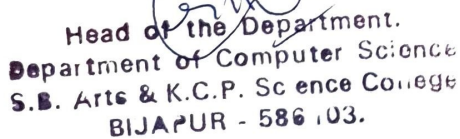 Head of the Department.
Department of Computer Science
S.B. Arts & K.C.P. Sc ence College
BIJAPUR - 586 103.